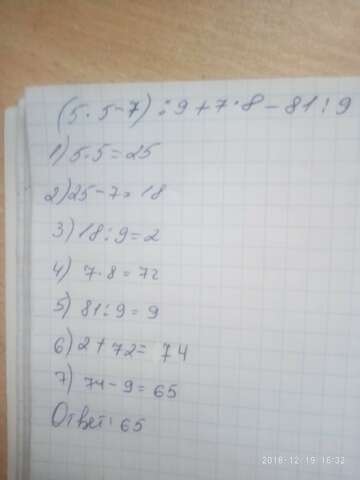 (5·5-7):9+7·8-81:9
1) 5·5=25
2) 25-7=18
3) 18:9=2
4) 7·8=72
5) 81:9=9
6) 2+72=74
7) 74-9=65
Ответ: 65
2018-12-19 16:32